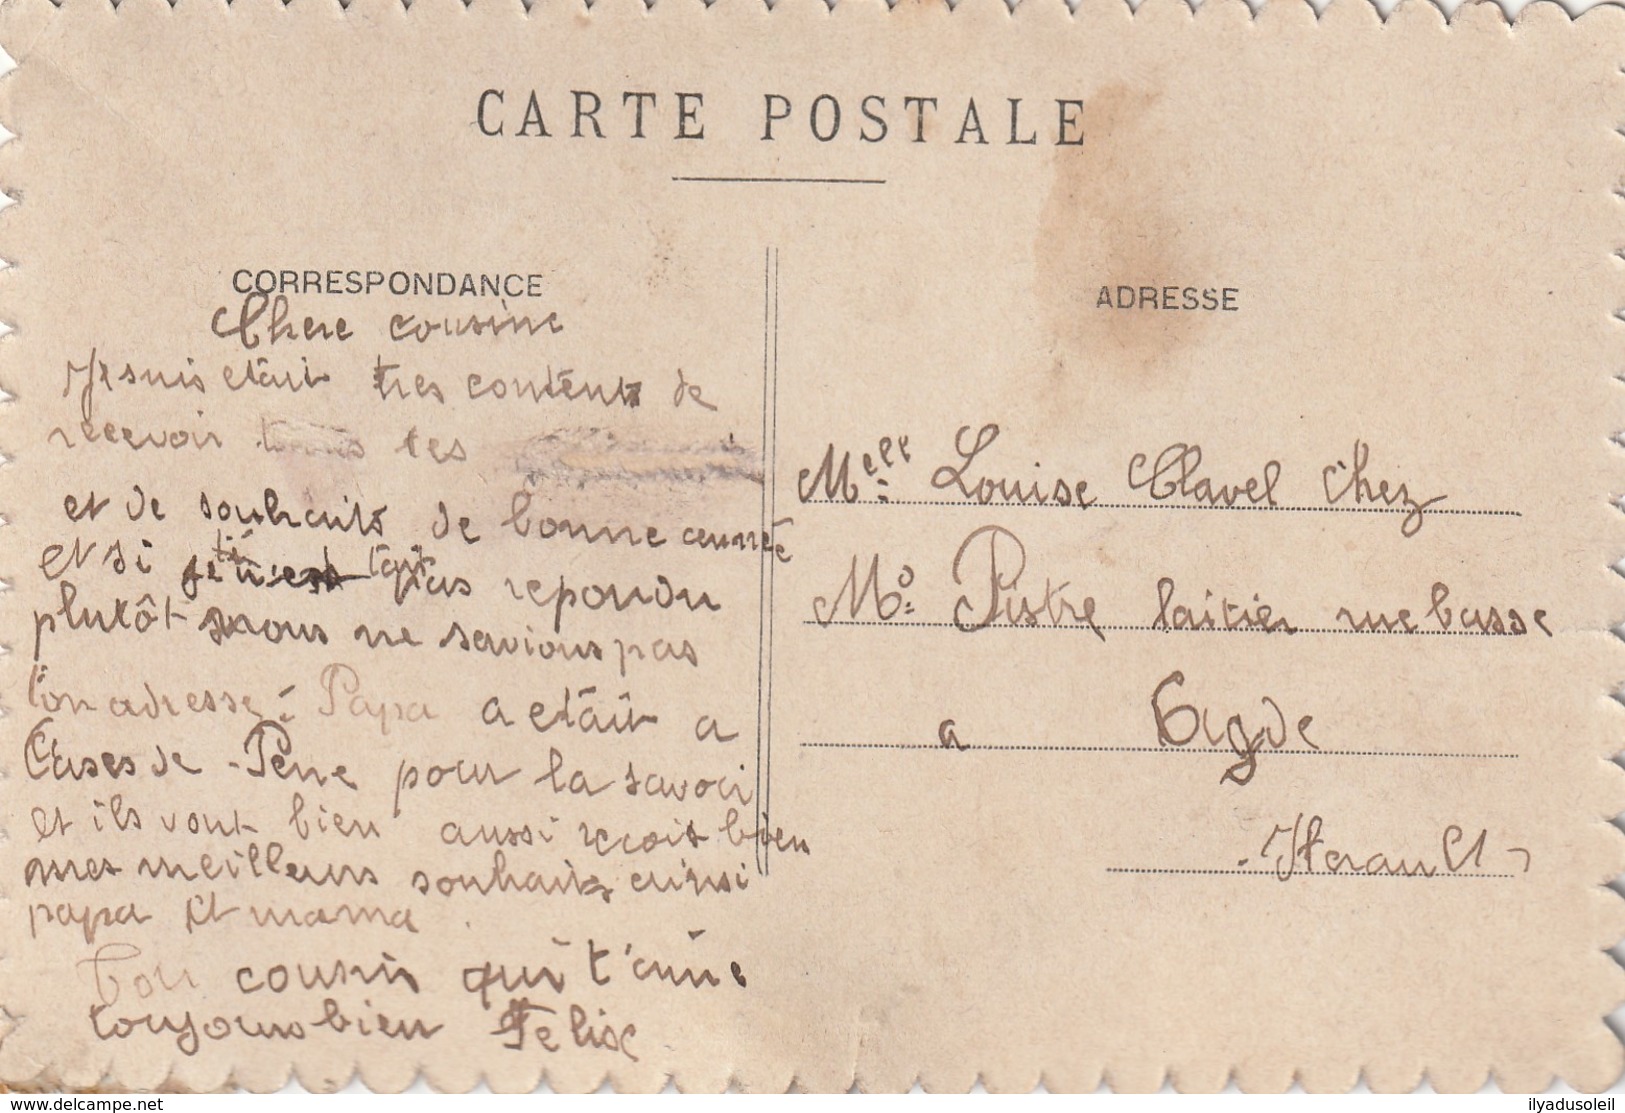 CARTE POSTALE
CORRESPONDANCE
Chere cousine
Je suis etait tres content de
recevoir tous tes
et de souhaits de bonne année
et si je t'ai pas repondu
plutôt nous ne savions pas
ton adresse. Papa a etait a
Cases de Pene pour la savoir
et ils vont bien aussi recois bien
mes meilleurs souhaits ainsi
papa et mama
Ton cousin qui t'aime
toujours bien Felix
ADRESSE
Melle Louise Clavel Chez
Mo Pistre laitier rue basse
a Agde
Herault
www.delcampe.net
ilyadusoleil